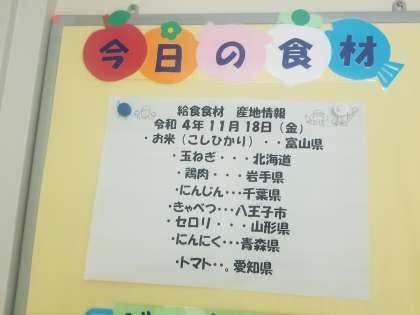 今日の食材
給食食材　産地情報
令和 4年 11月 18日（金）
・お米（こしひかり）・・富山県
・玉ねぎ・・・北海道
・鶏肉・・・岩手県
・にんじん・・・千葉県
・きゃべつ・・・八王子市
・セロリ・・・山形県
・にんにく・・・青森県
・トマト・・。愛知県